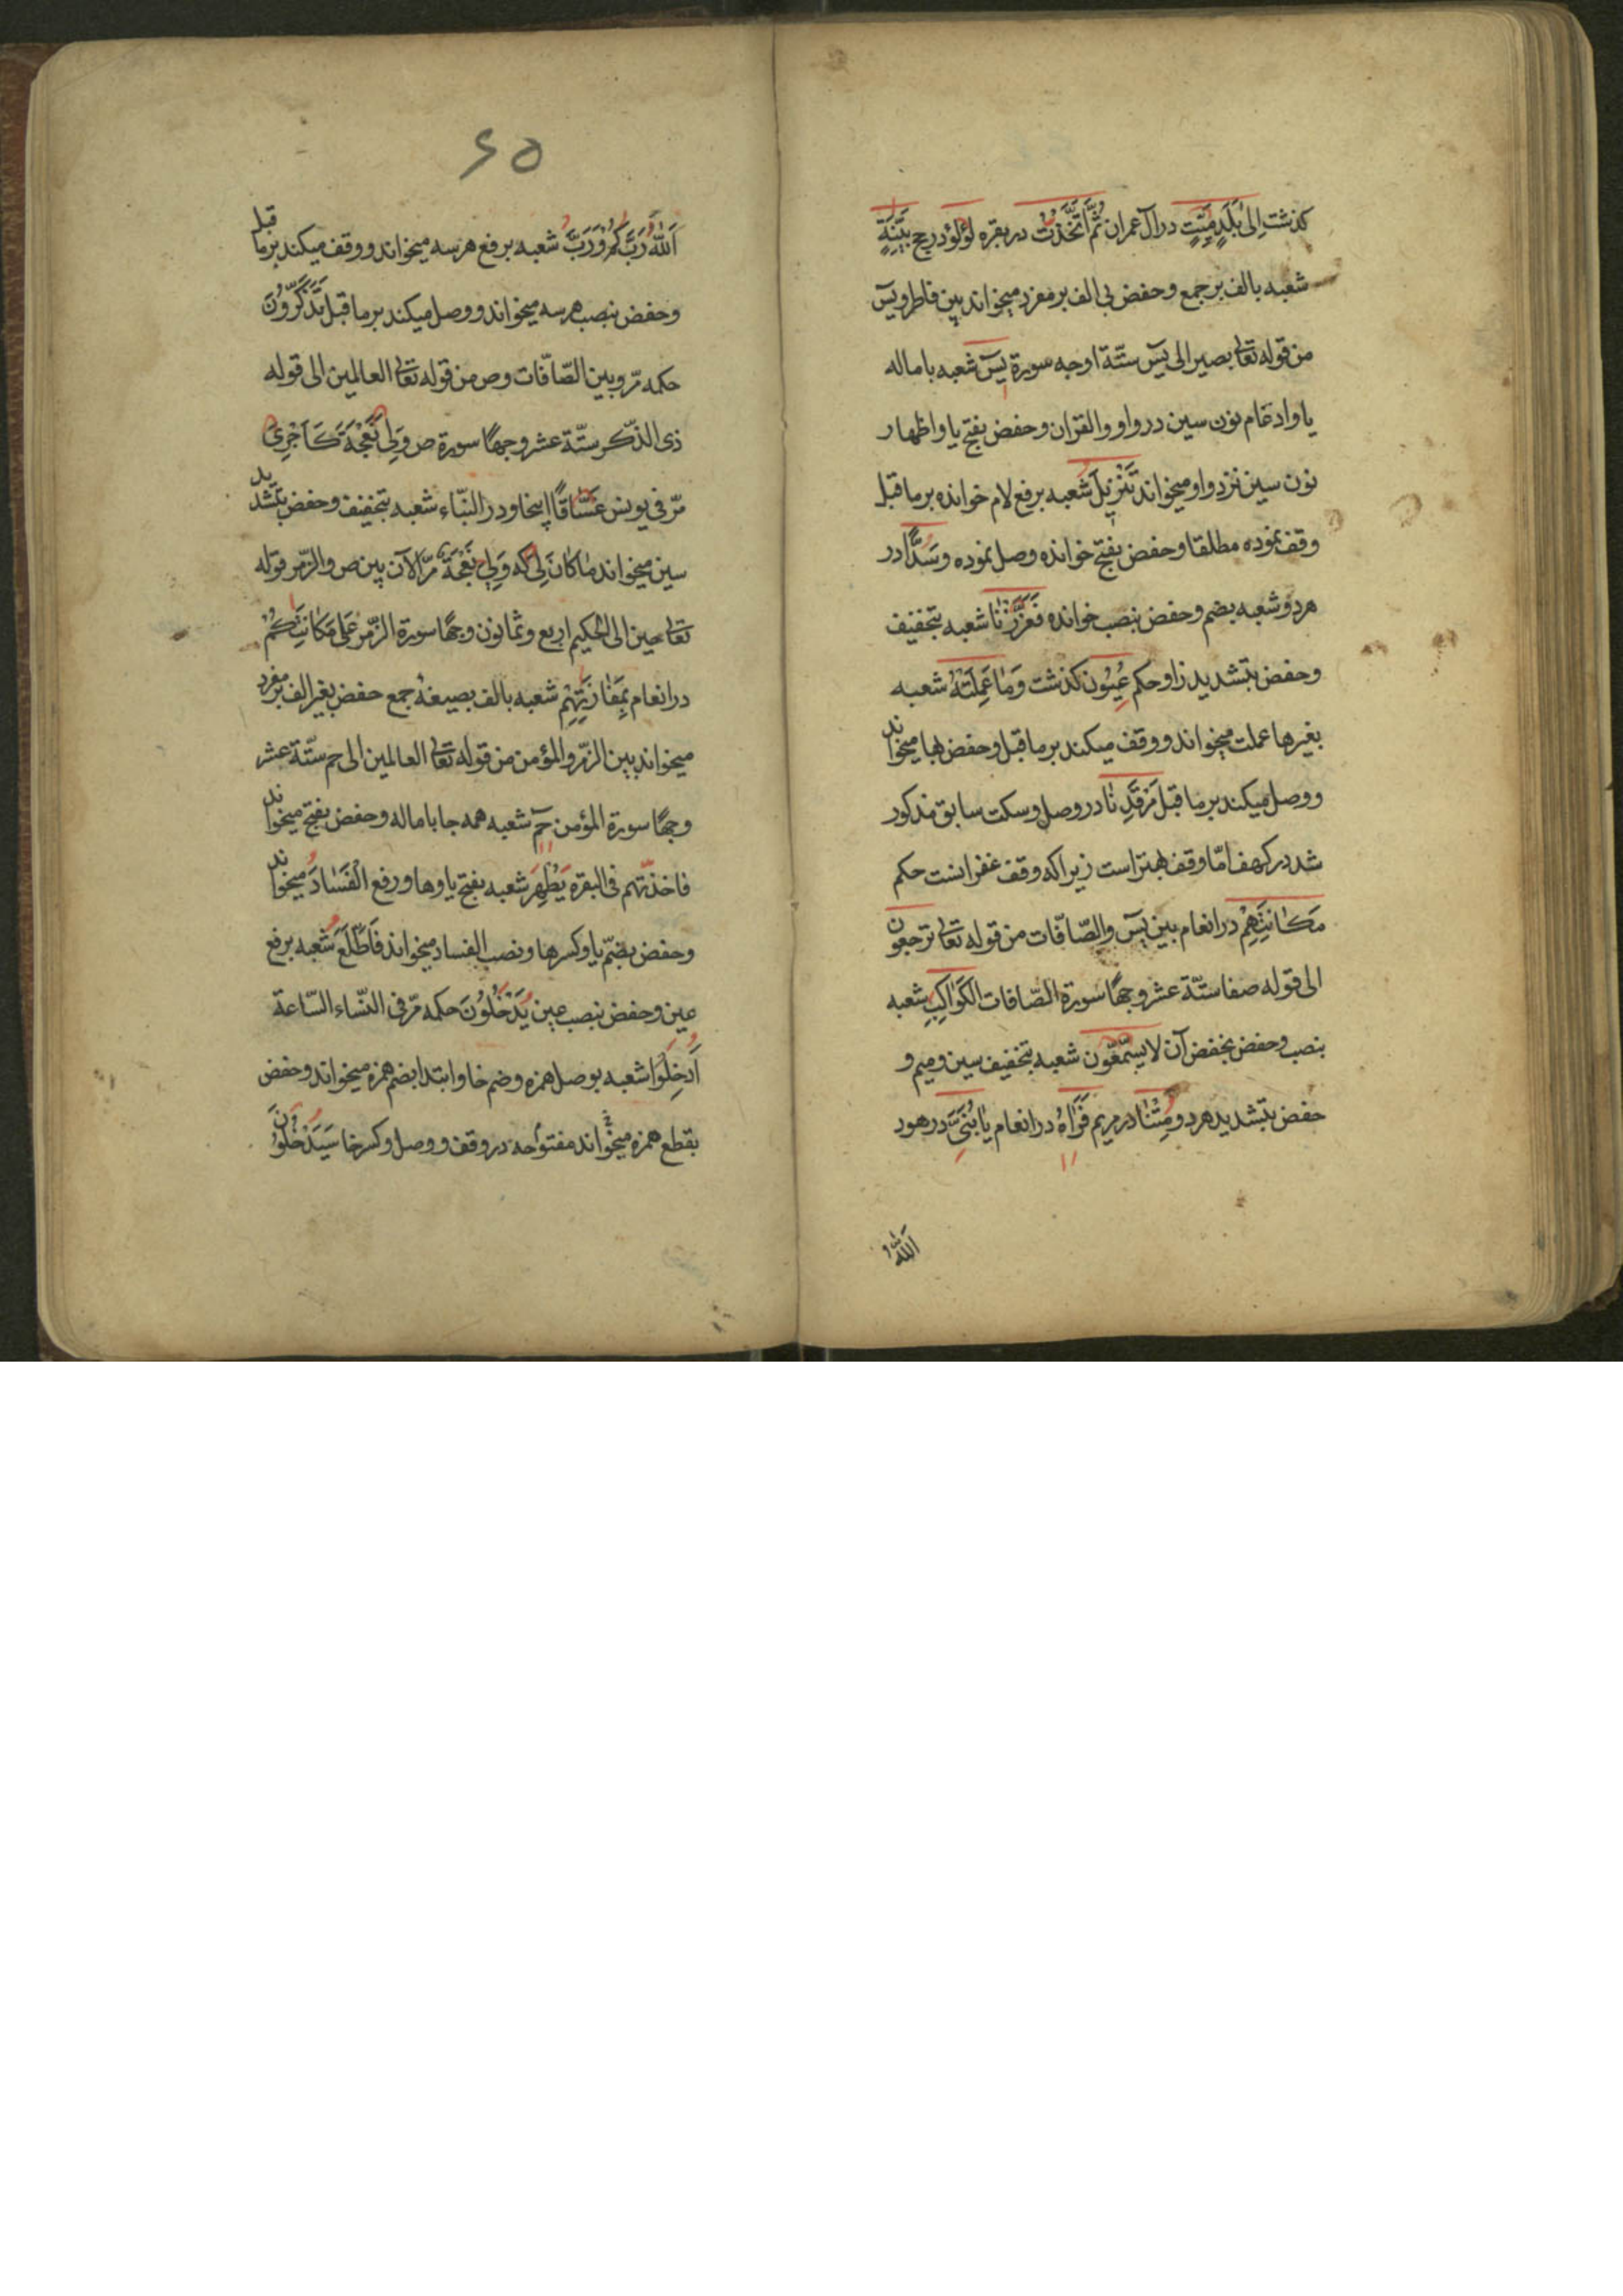 كذشت اِلىٰ بَلَدٍ مَيِّتٍ در آل عمران ثُمَّ اَتَّخَذَتْ در بقره لؤلؤ در حج بَيِّنَةٍ
شعبه بالف بر جمع وحفض بى الف بر مفرد ميخواند بين فاطر ويس
من قوله تعالى بصير الى يس ستّة اوجه سورة يس شعبه باماله
يا وادغام نون سين در واو والقران وحفض بفتح يا واظهار
نون سين نزد واو ميخواند تَنْزِيلَ شعبه برفع لام خوانده برما قبل
وقف نموده مطلقا وحفض بفتح خوانده وصل نموده وسَدًّا در
هردو شعبه بضم وحفض بنصب خوانده فَعَزَّزْنَا شعبه بتخفيف
وحفض بتشديد زا وحكم عُيُون كذشت وَمَا عَمِلَتْهُ شعبه
بغيرها عملت ميخواند ووقف ميكند برما قبل وحفض بها ميخواند
ووصل ميكند برما قبل مَرْقَدِنَا در وصل وسكت سابق مذكور
شد در كهف امّا وقف بهتر است زيراكه وقف غفرانست حكم
مَكَانَتِهِمْ در انعام بين يس والصّافّات من قوله تعالى ترجعون
الى قوله صفا ستّة عشر وجهًا سورة الصّافات الكَوَاكِبِ شعبه
بنصب وحفض بخفض آن لا يسّمّعون شعبه بتخفيف سين وميم و
حفض بتشديد هردو مِتْنَا در مريم فَرَاٰهُ در انعام يَا بُنَيَّ در هود
اَللّٰهُ
٤٥
اَللّٰهَ رَبَّكُمْ وَرَبَّ شعبه برفع هرسه ميخواند ووقف ميكند برما قبل
وحفض بنصب هرسه ميخواند ووصل ميكند برما قبل تَذَكَّرُونَ
حكمه مرّ وبين الصّافّات وص من قوله تعالى العالمين الى قوله
ذى الذّكر ستّة عشر وجهًا سورة ص وَلِيَ نَعْجَةٌ كَاَجْرِيَ
مرّ فى يونس غَسَّاقًا اينجا ودر النّباء شعبه بتخفيف وحفض بتشديد
سين ميخواند مَا كَانَ لِيَ كه وَلِيَ نَعْجَةٌ مرّ الآن بين ص والزّمر قوله
تعالى حين الى الحكيم اربع وثمانون وجهًا سورة الزّمر عَلَى مَكَانَتِكُمْ
در انعام بِمَفَازَتِهِمْ شعبه بالف بصيغهٔ جمع حفض بغير الف بر مفرد
ميخواند بين الزّمر والمؤمن من قوله تعالى العالمين الى حم ستّة عشر
وجهًا سورة المؤمن حم شعبه همه جا باماله وحفض بفتح ميخواند
فاخذتهم فى البقره يُظْهِرَ شعبه بفتح يا وها ورفع الْفَسَادَ ميخواند
وحفض بضمّ يا وكسرها ونصب الفساد ميخواند فَاَطَّلِعَ شعبه برفع
عين وحفض بنصب عين يُدْخَلُونَ حكمه مرّ فى النّساء السّاعة
اَدْخِلُوا شعبه بوصل همزه وضم خا وابتدا بضم همزه ميخواند وحفض
بقطع همزه ميخواند مفتوحه در وقف ووصل وكسر خا سَيَدْخُلُونَ